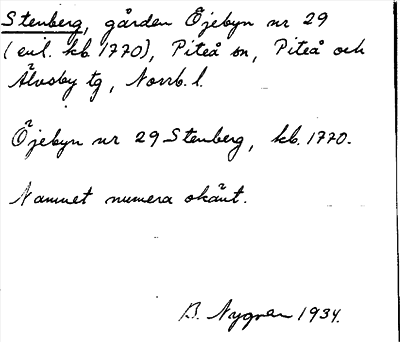 Stenberg, gården Öjebyn nr 29
(enl. kb. 1770), Piteå sn, Piteå och
Älvsby tg, Norrb. l.
Öjebyn nr 29 Stenberg, kb. 1770.
Namnet numera okänt.
B. Nygren 1934.